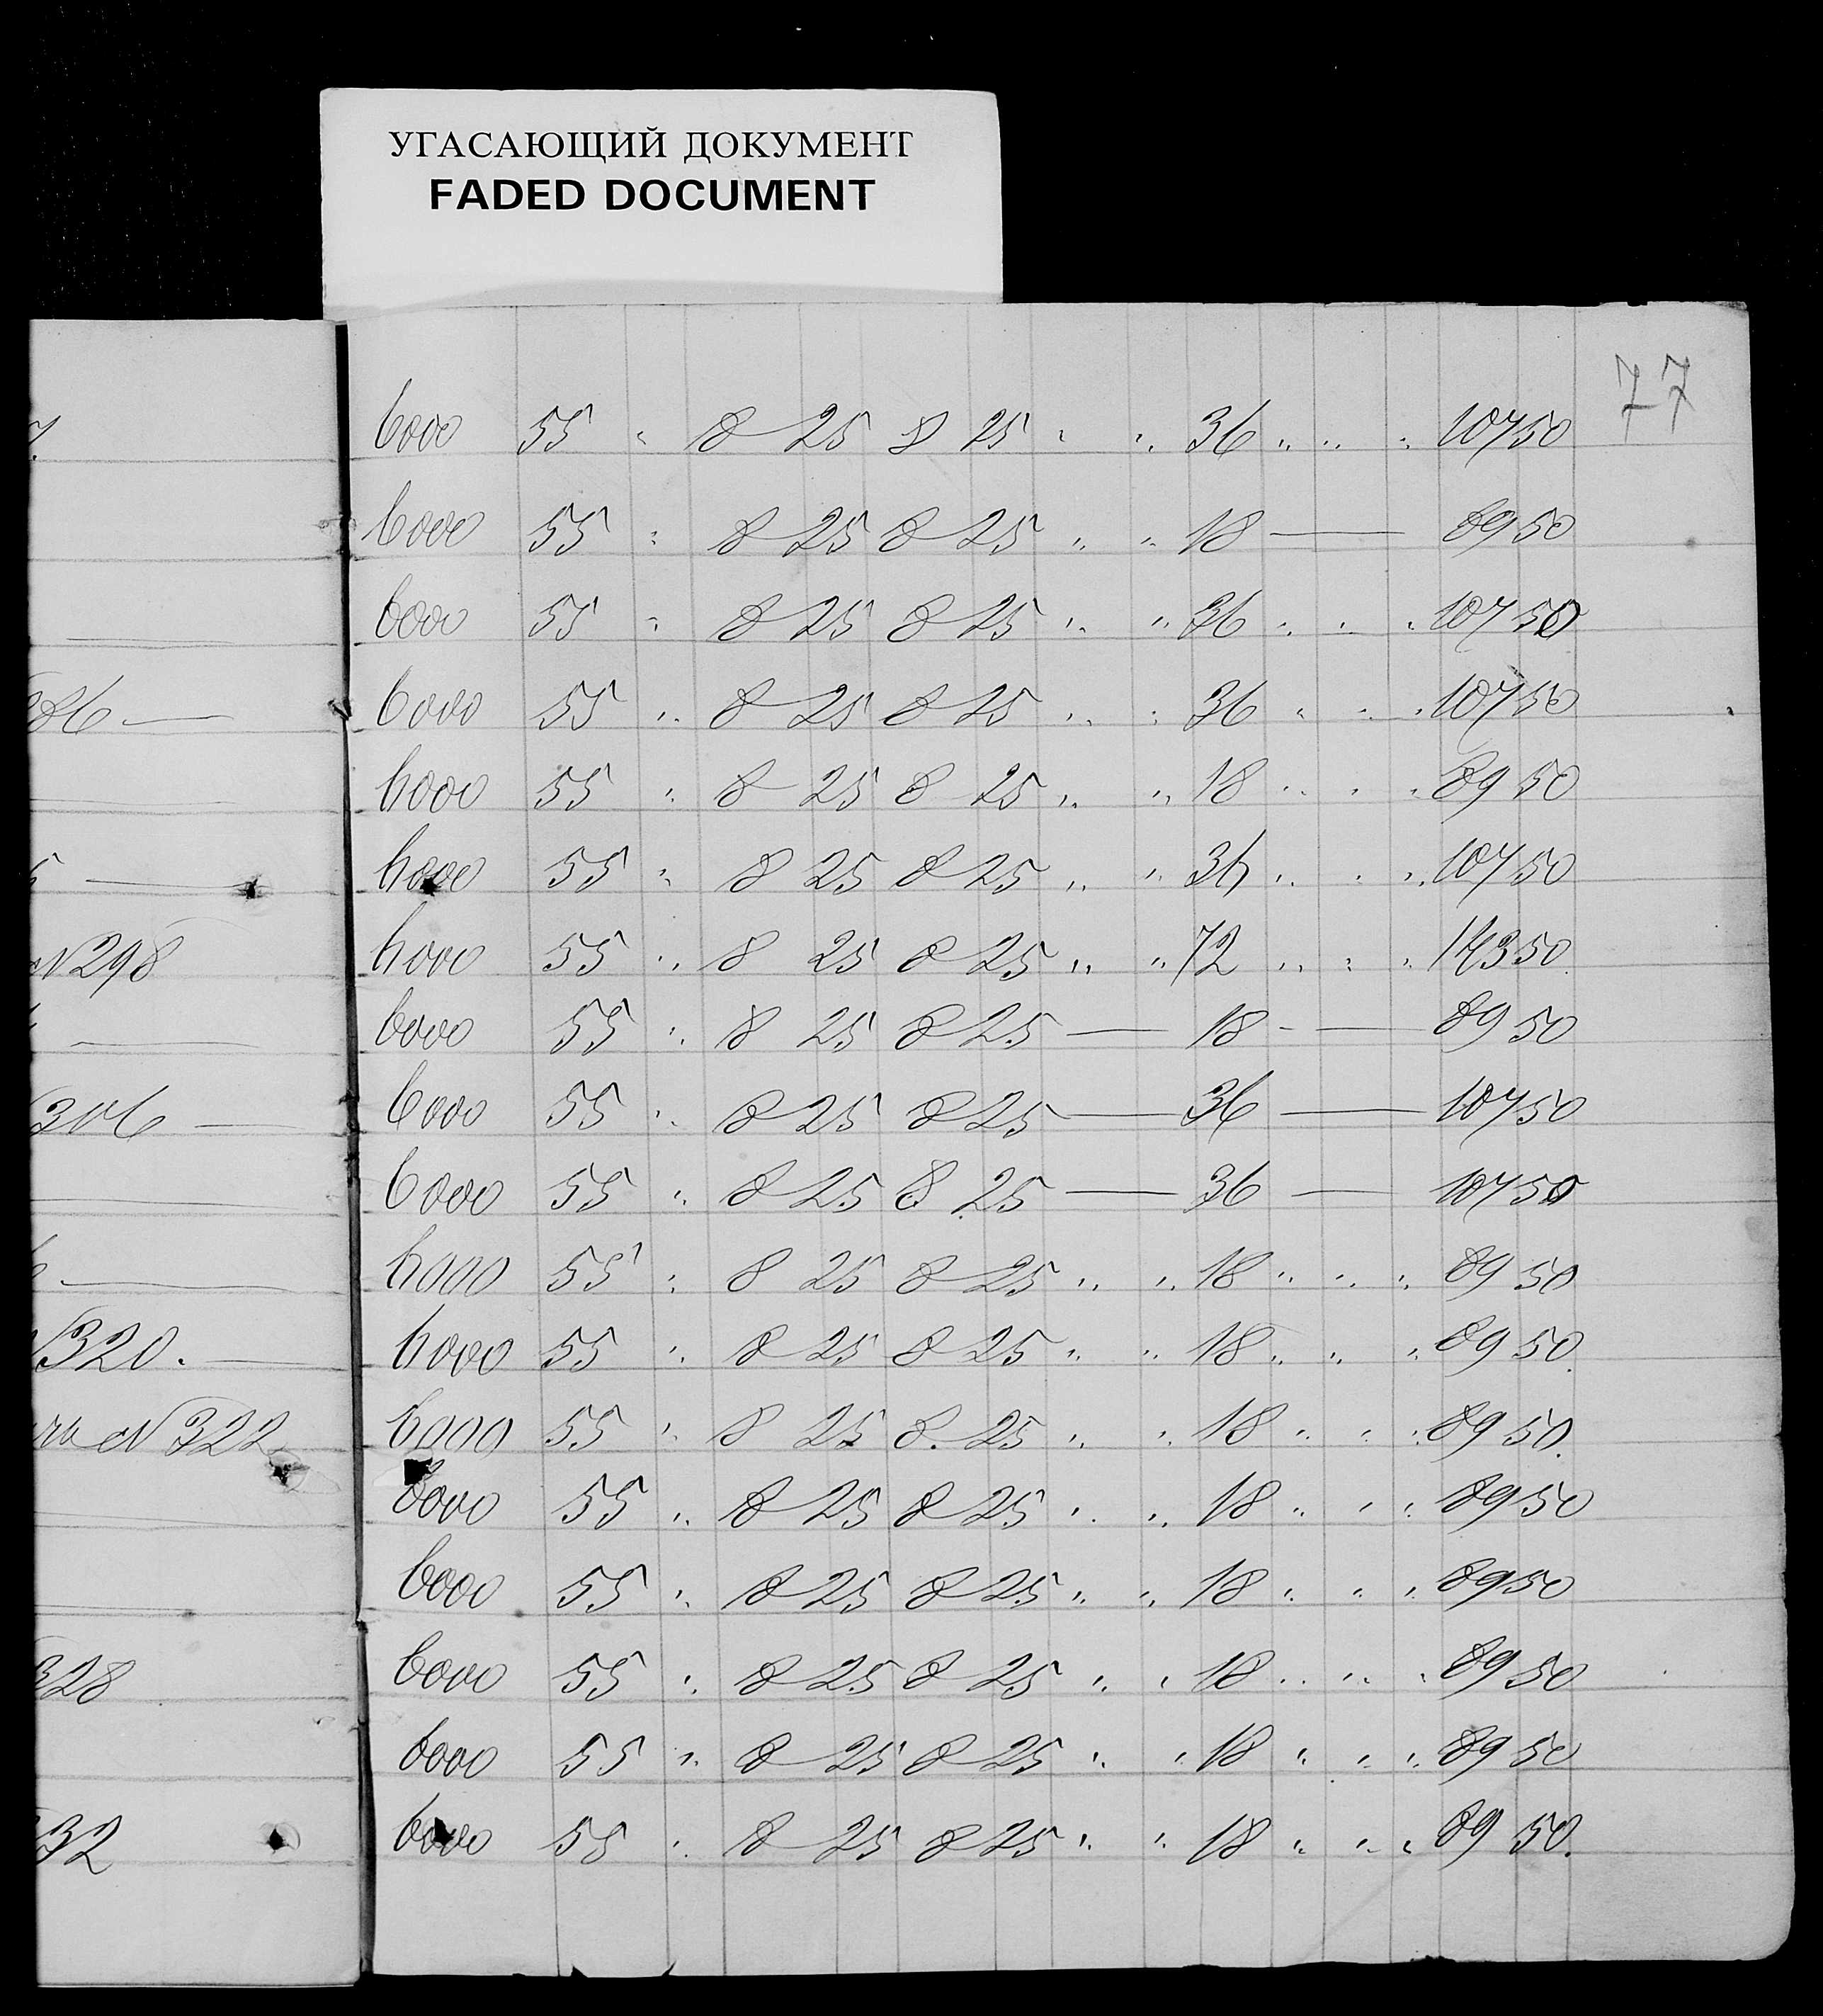 УГАСАЮЩИЙ ДОКУМЕНТ
FADED DOCUMENT
77
6000 55 " 8 25 8 25 " " 36 " " " 107 50
6000 55 " 8 25 8 25 " " 18 — 89 50
6000 55 " 8 25 8 25 " " 36 " " " 107 50
86 — 6000 55 " 8 25 8 25 " " 36 " " " 107 50
6000 55 " 8 25 8 25 " " 18 " " " 89 50
6000 55 " 8 25 8 25 " " 36 " " " 107 50
N298 6000 55 " 8 25 8 25 " " 72 " " " 143 50
6000 55 " 8 25 8 25 — 18 — 89 50
306 — 6000 55 " 8 25 8 25 — 36 — 107 50
6000 55 " 8 25 8 25 — 36 — 107 50
6000 55 " 8 25 8 25 " " 18 " " " 89 50
320. — 6000 55 " 8 25 8 25 " " 18 " " " 89 50.
N322 6000 55 " 8 25 8. 25 " " 18 " " " 89 50.
6000 55 " 8 25 8 25 " " 18 " " " 89 50
6000 55 " 8 25 8 25 " " 18 " " " 89 50
328 6000 55 " 8 25 8 25 " " 18 " " " 89 50
6000 55 " 8 25 8 25 " " 18 " " " 89 50
32 6000 55 " 8 25 8 25 " " 18 " " " 89 50.